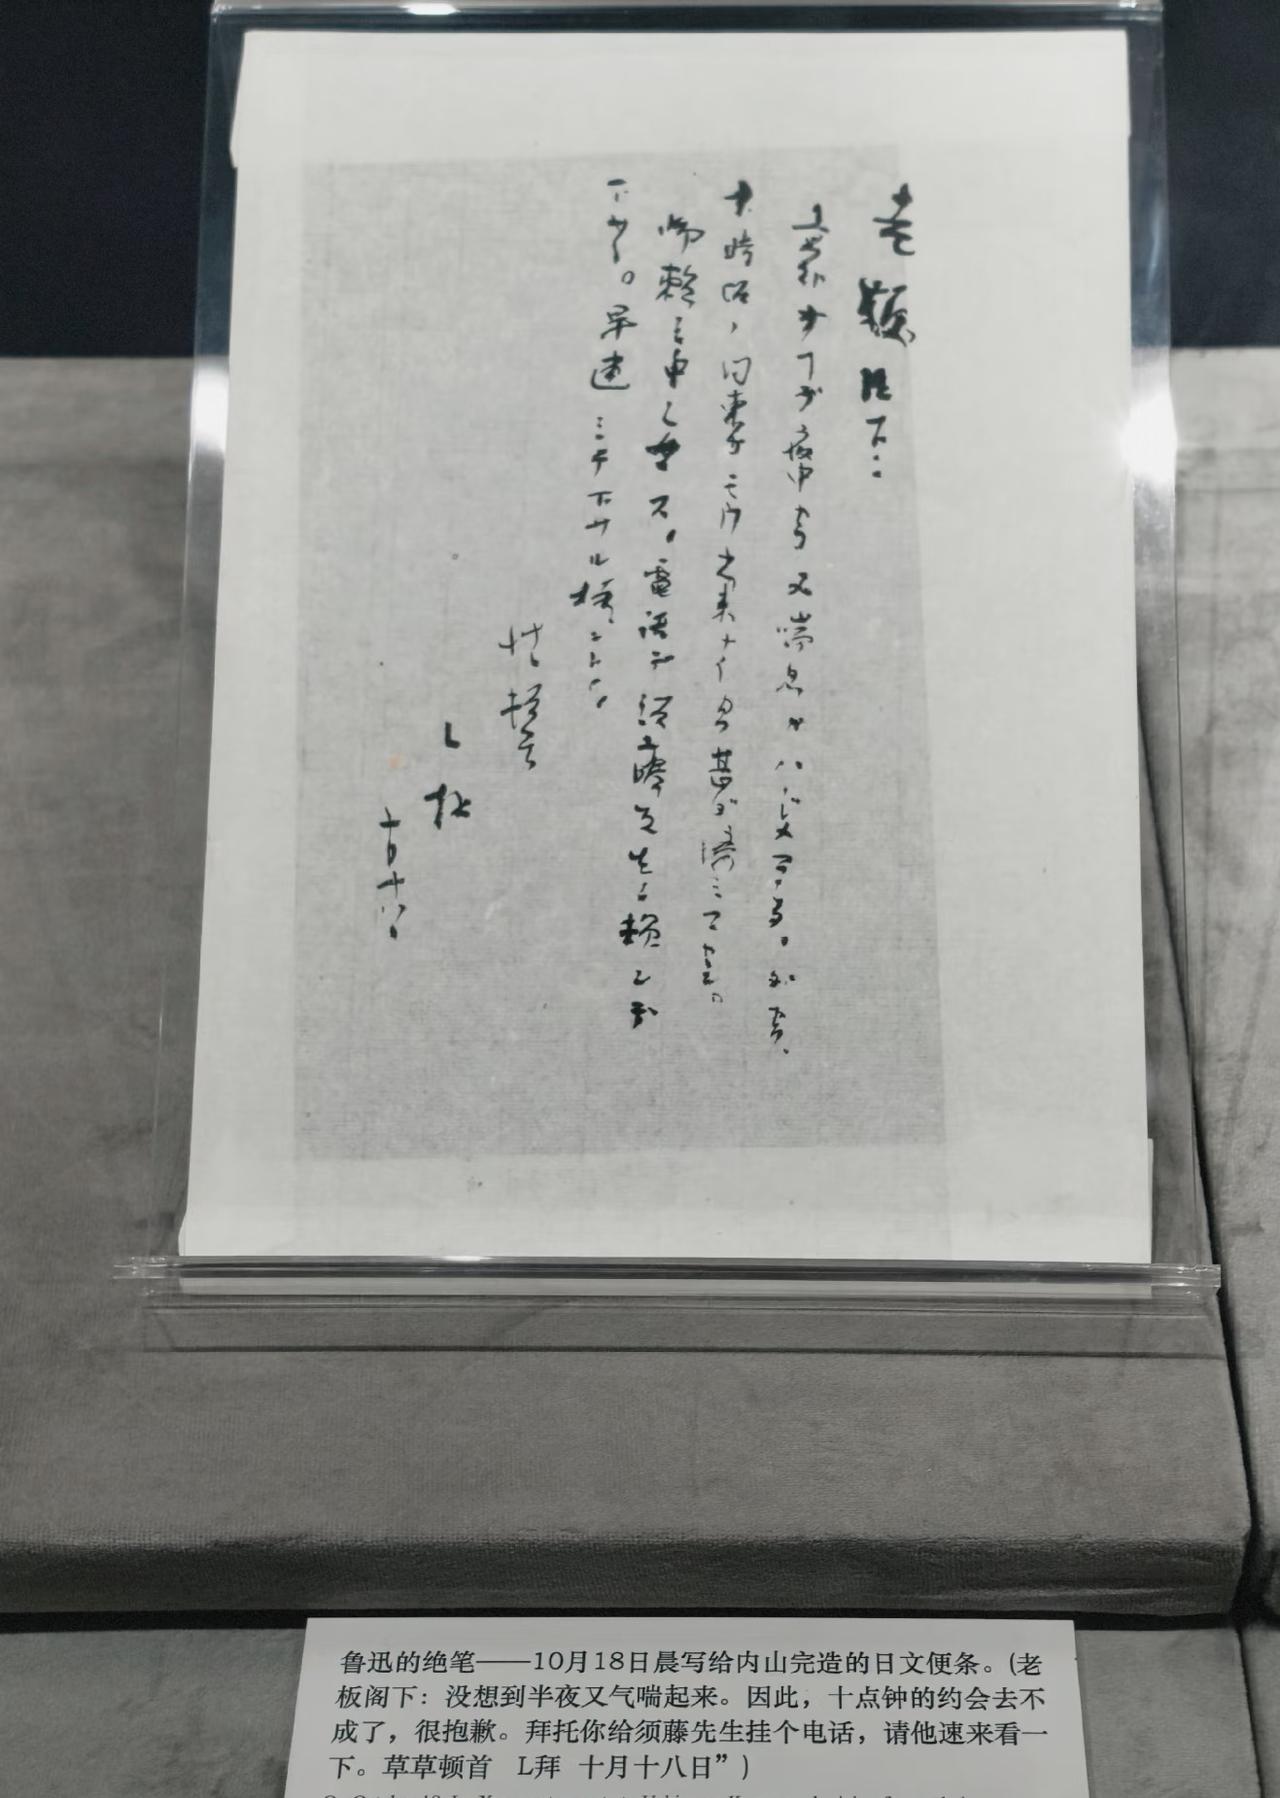 老版几下：
意外ナ事デ夜中カラ又喘息ガハジメマシタ。ダカラ、
十時頃ノ約束ガモウ出来ナイカラ甚ダ済ミマセン。
御頼ミ申シマス。電話デ須藤先生ニ頼ンデ
下サイ。早速ミテ下サル様ニト、
草々頓首
L 拝
十月十八日
鲁迅的绝笔——10月18日晨写给内山完造的日文便条。(老
板阁下：没想到半夜又气喘起来。因此，十点钟的约会去不
成了，很抱歉。拜托你给须藤先生挂个电话，请他速来看一
下。草草顿首 L拜 十月十八日”)